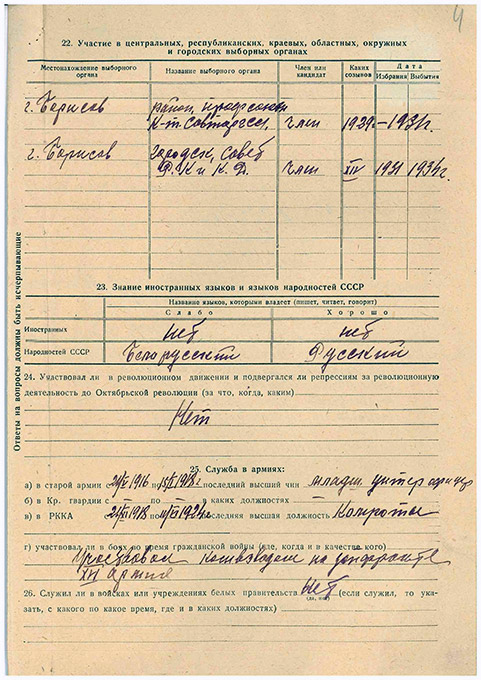 4
22. Участие в центральных, республиканских, краевых, областных, окружных
и городских выборных органах
Местонахождение выборного органа
Название выборного органа
Член или кандидат
Каких созывов
Дата
Избрания
Выбытия
г. Борисов
район, профсоюзн
К-т Совторгсл, член 1929.-1931г.
г. Борисов
городск, совет
Р. К и К. Д. член XIV 1931 1934г.
23. Знание иностранных языков и языков народностей СССР
Название языков, которыми владеет (пишет, читает, говорит)
Слабо
Хорошо
Иностранных
нет
нет
Народностей СССР
Белорусский
Русский
Ответы на вопросы должны быть исчерпывающие
24. Участвовал ли в революционном движении и подвергался ли репрессиям за революционную
деятельность до Октябрьской революции (за что, когда, каким)
Нет
25. Служба в армиях:
а) в старой армии с 1916 по 1918г последний высший чин младш. унтер офицер
б) в Кр. гвардии с — по — в каких должностях —
в) в РККА с 1918 по последняя высшая должность Комроты
г) участвовал ли в боях во время гражданской войны (где, когда и в качестве кого)
Участвовал комвзводом на
XII армия
26. Служил ли в войсках или учреждениях белых правительств нет (если служил, то ука-
(да, нет)
зать, с какого по какое время, где и в каких должностях)